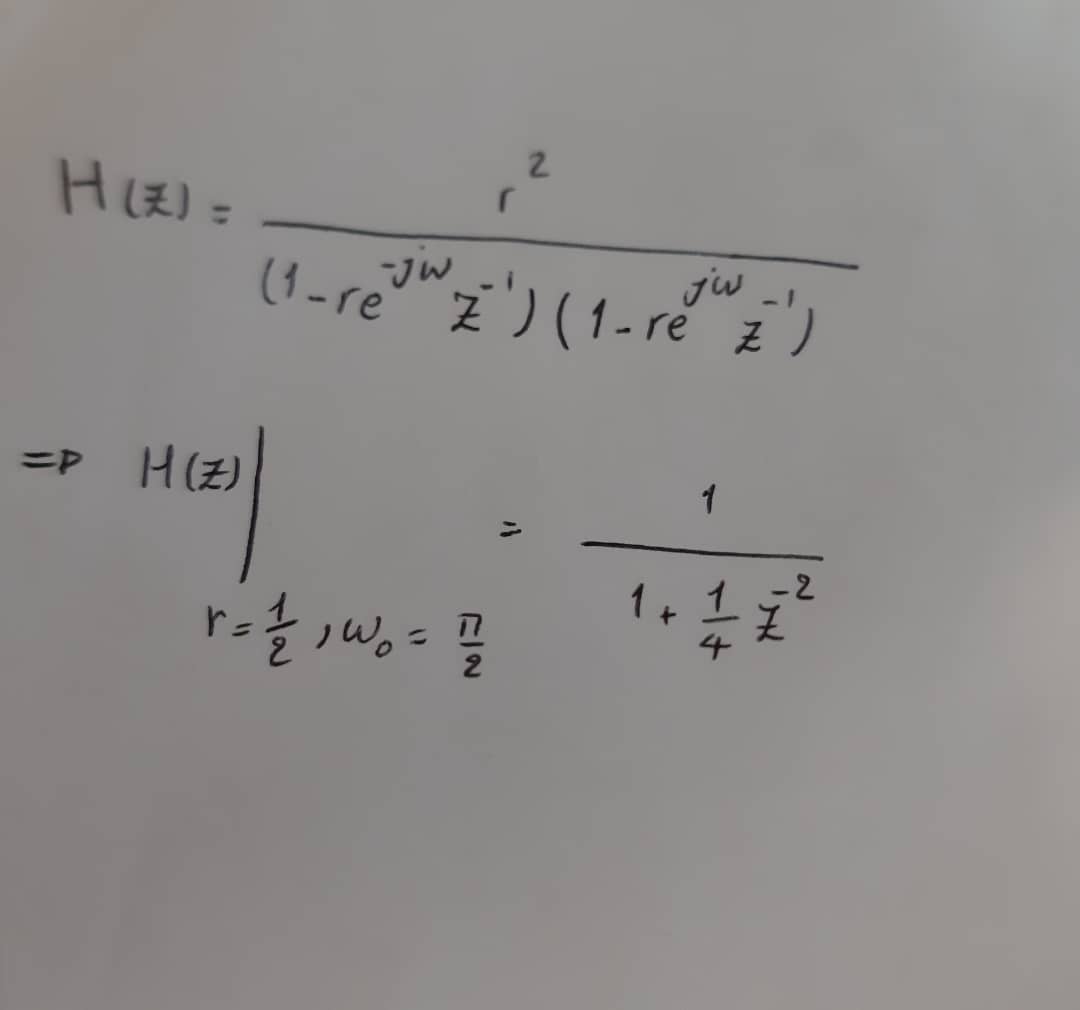 H(z) = r² / (1-re^-jw z^-1)(1-re^jw z^-1)
=> H(z)| r=1/2, w₀=π/2 = 1 / 1+1/4 z^-2